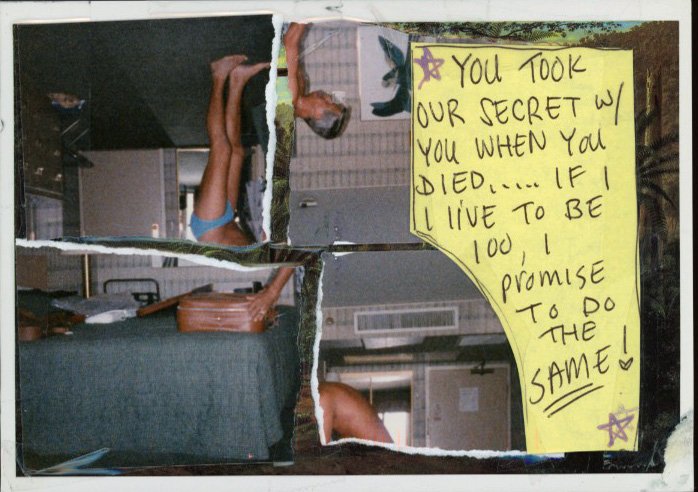 YOU TOOK
OUR SECRET W/
YOU WHEN YOU
DIED..... IF I
I lIVE TO BE
100, I
PROMISE
TO DO
THE
SAME!